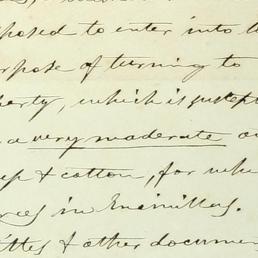 posed to enter into t
rpose of turning to
perty, which is suscept
a very moderate ou
ep & cotton, for whi
ores in
ittes & other documen